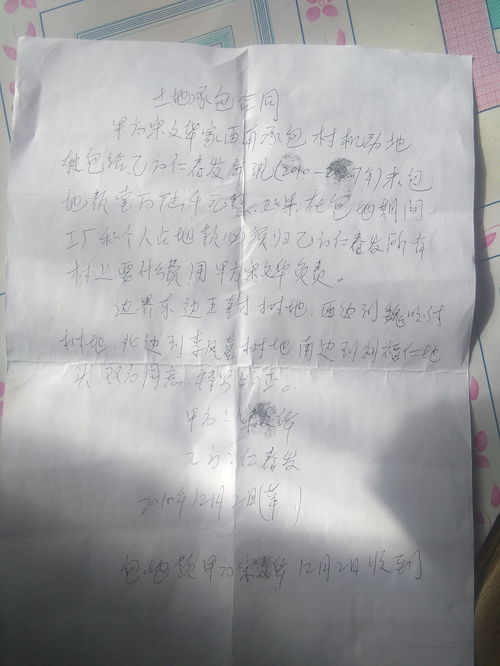 土地承包合同
甲方宋文华家西南承包村机动地
转包给乙方仁春发 现(2010-20 7年)来包
地款壹万陆千元整.如果在包地期间
工厂和个人占地款必须归乙方仁春发所有
村上要什么费用甲方宋文华负责。
边界东边王 才树地.西边到魏 付
树地.北边到李凤喜树地南边到刘福仁地
头.双方同意.特立此正。
甲方:宋文华
乙方:仁春发
2010年12月2日( )
包地款甲方宋文华12月2日收到